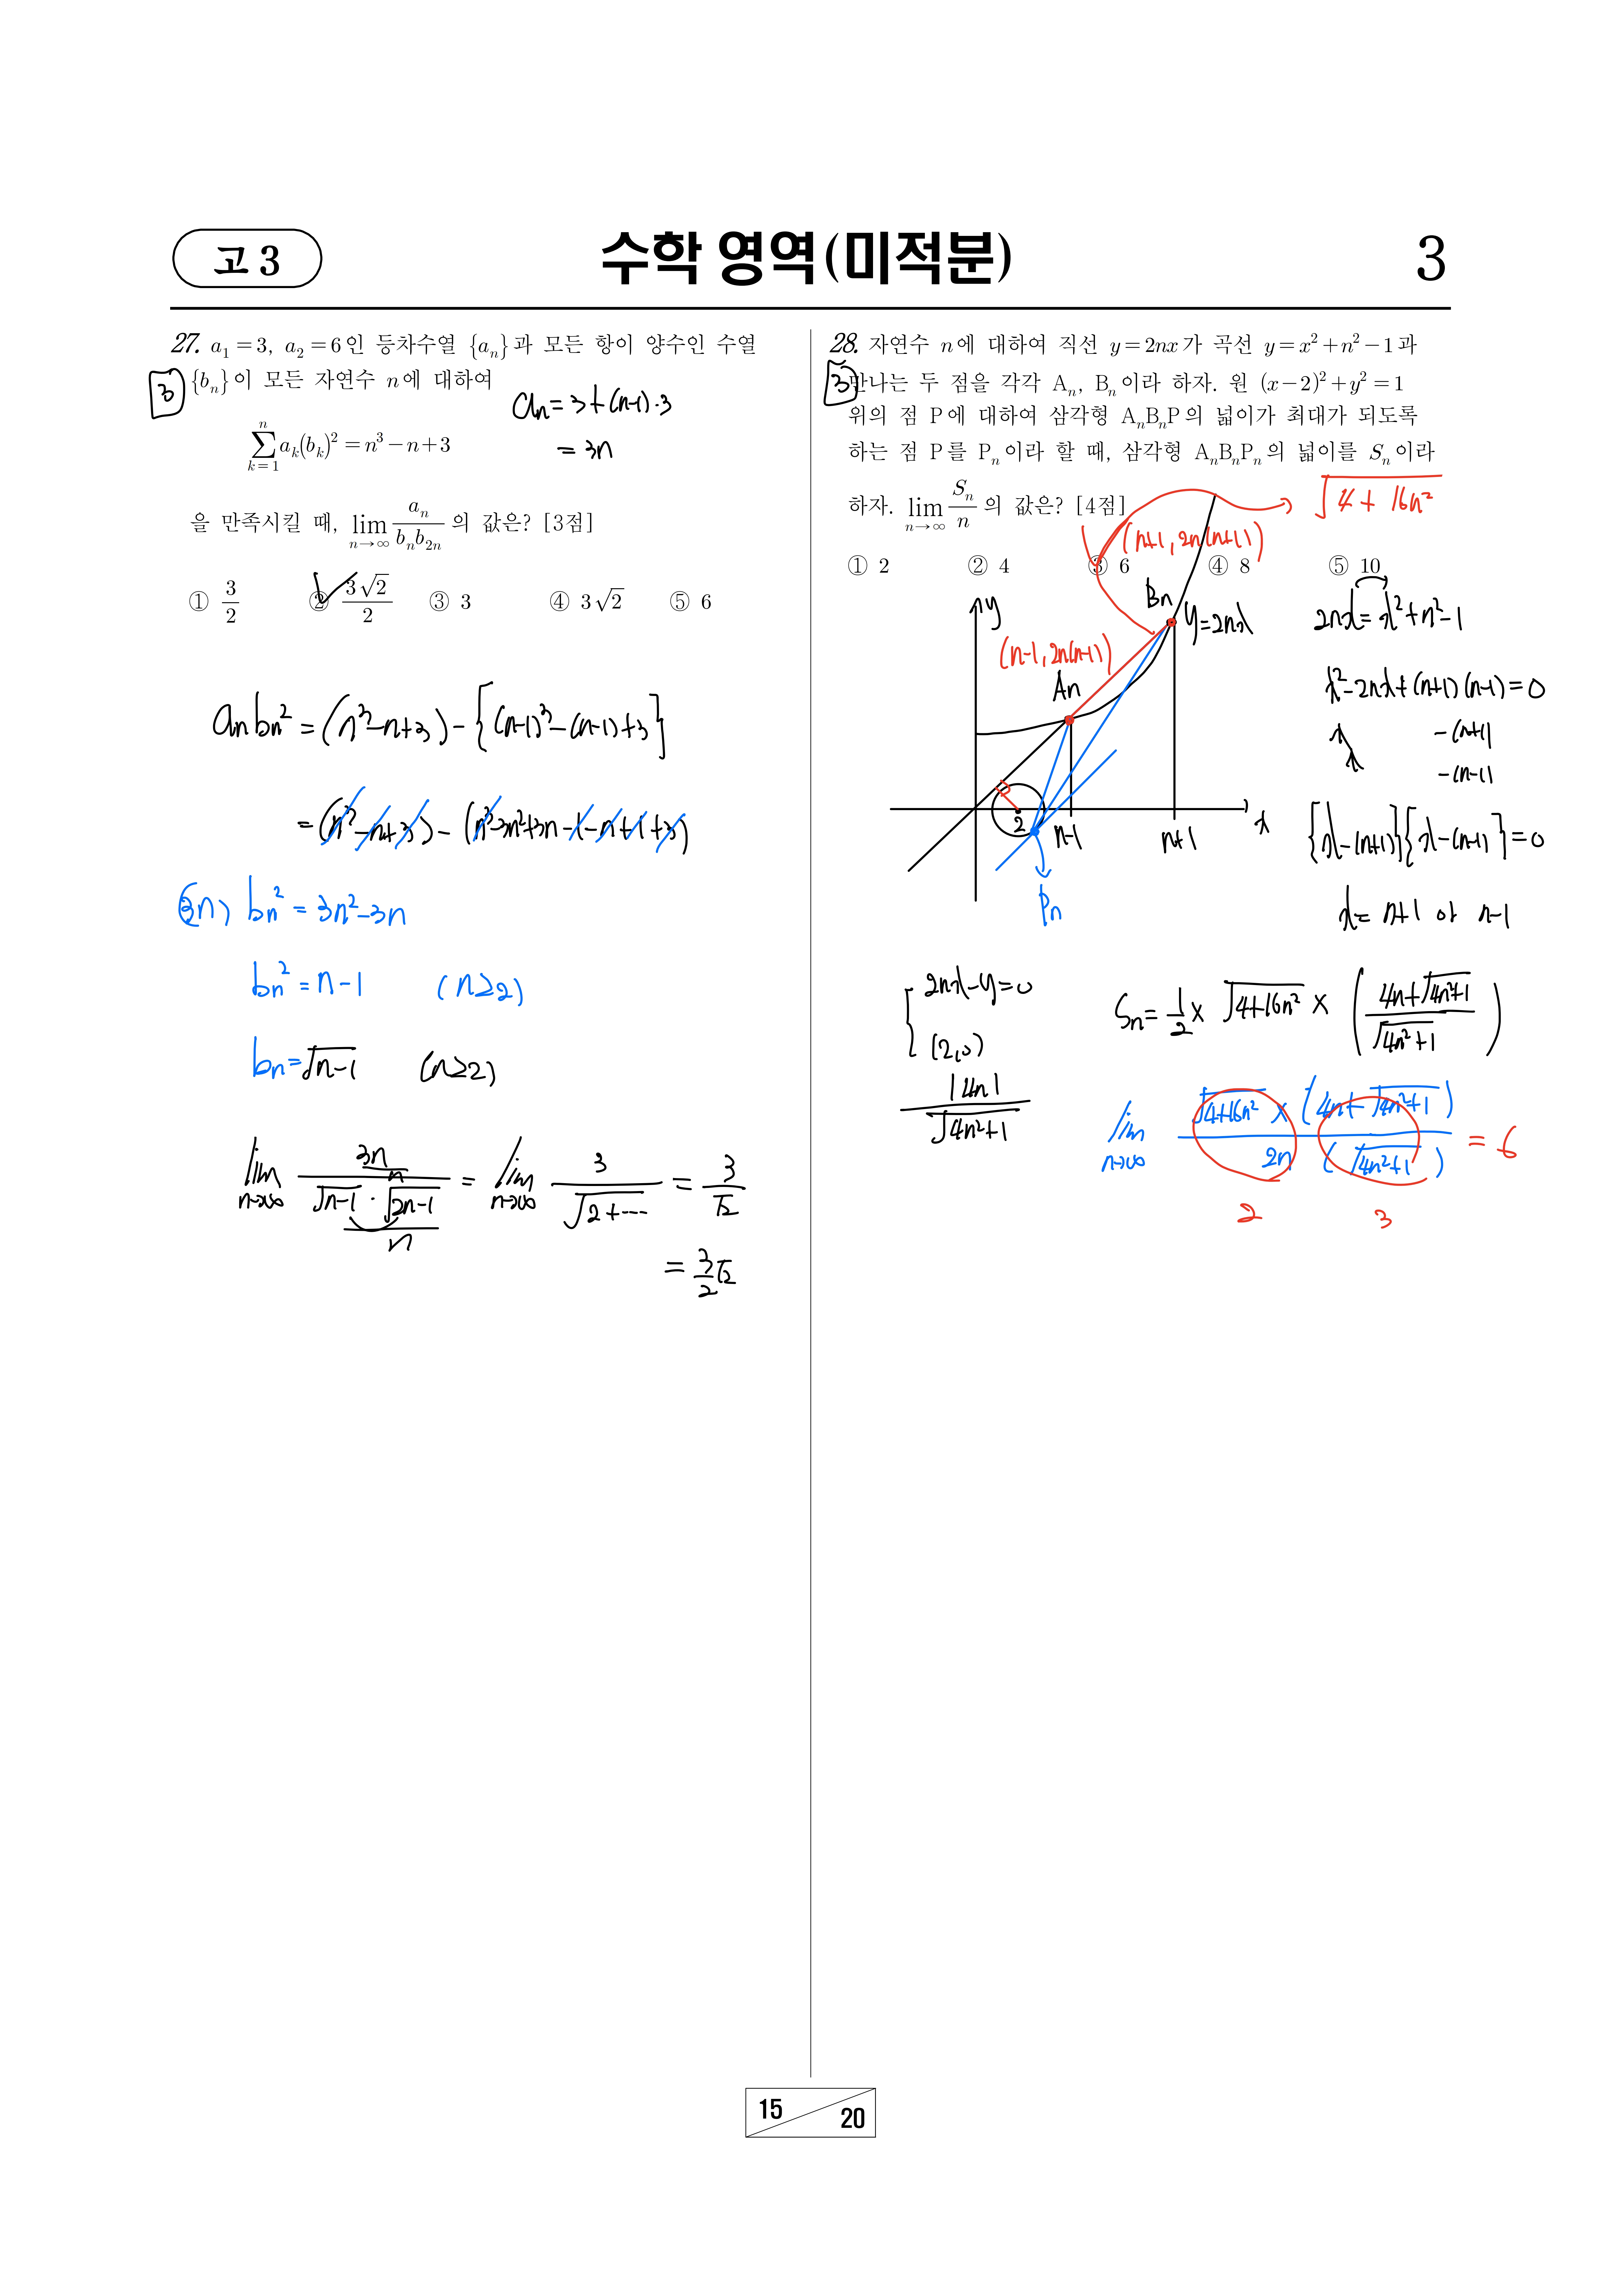 고 3
수학 영역(미적분)
3
27. a₁=3, a₂=6인 등차수열 {aₙ}과 모든 항이 양수인 수열
{bₙ}이 모든 자연수 n에 대하여
3
aₙ = 3+(n-1)·3
= 3n
∑_{k=1}^{n} aₖ(bₖ)² = n³-n+3
을 만족시킬 때, lim_{n→∞} aₙ/(bₙb₂ₙ) 의 값은? [3점]
① 3/2 ② 3√2/2 ③ 3 ④ 3√2 ⑤ 6
aₙbₙ² = (n³-n+3) - {(n-1)³-(n-1)+3}
= (n³-n+3) - (n³-3n²+3n-1-n+1+3)
(3n) bₙ² = 3n²-3n
bₙ² = n-1 (n≥2)
bₙ = √(n-1) (n≥2)
lim_{n→∞} (3n/n)/((√(n-1)·√(2n-1))/n) = lim_{n→∞} 3/√(2+⋯) = 3/√2
= 3/2 √2
28. 자연수 n에 대하여 직선 y=2nx가 곡선 y=x²+n²-1과
3
만나는 두 점을 각각 Aₙ, Bₙ이라 하자. 원 (x-2)²+y²=1
위의 점 P에 대하여 삼각형 AₙBₙP의 넓이가 최대가 되도록
하는 점 P를 Pₙ이라 할 때, 삼각형 AₙBₙPₙ의 넓이를 Sₙ이라
하자. lim_{n→∞} Sₙ/n 의 값은? [4점]
√(4+16n²)
(n+1, 2n(n+1))
① 2 ② 4 ③ 6 ④ 8 ⑤ 10
y
Bₙ
y=2nx
(n-1, 2n(n-1))
Aₙ
2
n-1
n+1
x
Pₙ
2nx = x²+n²-1
x²-2nx+(n+1)(n-1)=0
x -(n+1)
x -(n-1)
{x-(n+1)}{x-(n-1)}=0
x = n+1 or n-1
2nx-y=0
(2,0)
|4n|/√(4n²+1)
Sₙ = 1/2 × √(4+16n²) × ((4n+√(4n²+1))/√(4n²+1))
lim_{n→∞} (√(4+16n²) × (4n+√(4n²+1)))/(2n (√(4n²+1))) = 6
2 3
15
20